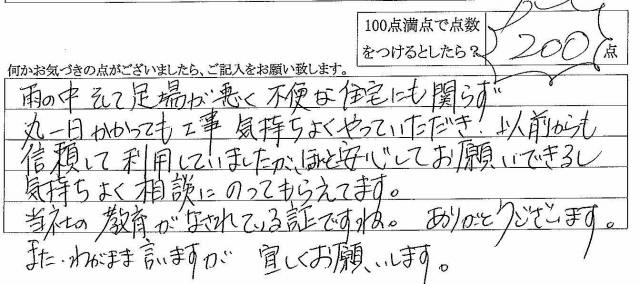 100点満点で点数
をつけるとしたら？ 200 点
何かお気づきの点がございましたら、ご記入をお願い致します。
雨の中 そして足場が悪く 不便な住宅にも関らず
丸一日かかっても工事 気持ちよくやっていただき、以前からも
信頼して利用していましたが、ほんと安心してお願いできるし
気持ちよく相談にのってもらえてます。
当社の教育がなされている証ですね。 ありがとうございます。
また、わがまま言いますが 宜しくお願いします。